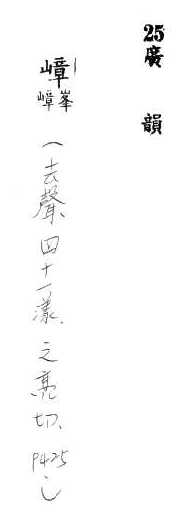 25廣韻
嶂
嶂峯
(去聲四十一漾.之亮切.P425)